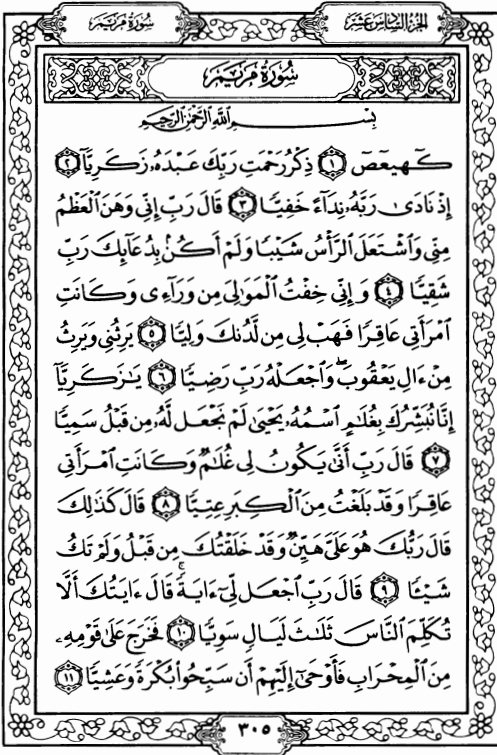 سُورَةُ مَرْيَم
الجُزْءُ السَّادِسَ عَشَر
سُورَةُ مَرْيَمَ
بِسْمِ اللَّهِ الرَّحْمَٰنِ الرَّحِيمِ
كٓهيعٓصٓ ۝١ ذِكْرُ رَحْمَتِ رَبِّكَ عَبْدَهُۥ زَكَرِيَّآ ۝٢
إِذْ نَادَىٰ رَبَّهُۥ نِدَآءً خَفِيًّا ۝٣ قَالَ رَبِّ إِنِّى وَهَنَ ٱلْعَظْمُ
مِنِّى وَٱشْتَعَلَ ٱلرَّأْسُ شَيْبًا وَلَمْ أَكُنۢ بِدُعَآئِكَ رَبِّ
شَقِيًّا ۝٤ وَإِنِّى خِفْتُ ٱلْمَوَٰلِىَ مِن وَرَآءِى وَكَانَتِ
ٱمْرَأَتِى عَاقِرًا فَهَبْ لِى مِن لَّدُنكَ وَلِيًّا ۝٥ يَرِثُنِى وَيَرِثُ
مِنْ ءَالِ يَعْقُوبَ ۖ وَٱجْعَلْهُ رَبِّ رَضِيًّا ۝٦ يَٰزَكَرِيَّآ
إِنَّا نُبَشِّرُكَ بِغُلَٰمٍ ٱسْمُهُۥ يَحْيَىٰ لَمْ نَجْعَل لَّهُۥ مِن قَبْلُ سَمِيًّا
۝٧ قَالَ رَبِّ أَنَّىٰ يَكُونُ لِى غُلَٰمٌ وَكَانَتِ ٱمْرَأَتِى
عَاقِرًا وَقَدْ بَلَغْتُ مِنَ ٱلْكِبَرِ عِتِيًّا ۝٨ قَالَ كَذَٰلِكَ
قَالَ رَبُّكَ هُوَ عَلَىَّ هَيِّنٌ وَقَدْ خَلَقْتُكَ مِن قَبْلُ وَلَمْ تَكُ
شَيْـًٔا ۝٩ قَالَ رَبِّ ٱجْعَل لِّىٓ ءَايَةً ۚ قَالَ ءَايَتُكَ أَلَّا
تُكَلِّمَ ٱلنَّاسَ ثَلَٰثَ لَيَالٍ سَوِيًّا ۝١٠ فَخَرَجَ عَلَىٰ قَوْمِهِۦ
مِنَ ٱلْمِحْرَابِ فَأَوْحَىٰٓ إِلَيْهِمْ أَن سَبِّحُوا۟ بُكْرَةً وَعَشِيًّا ۝١١
٣٠٥